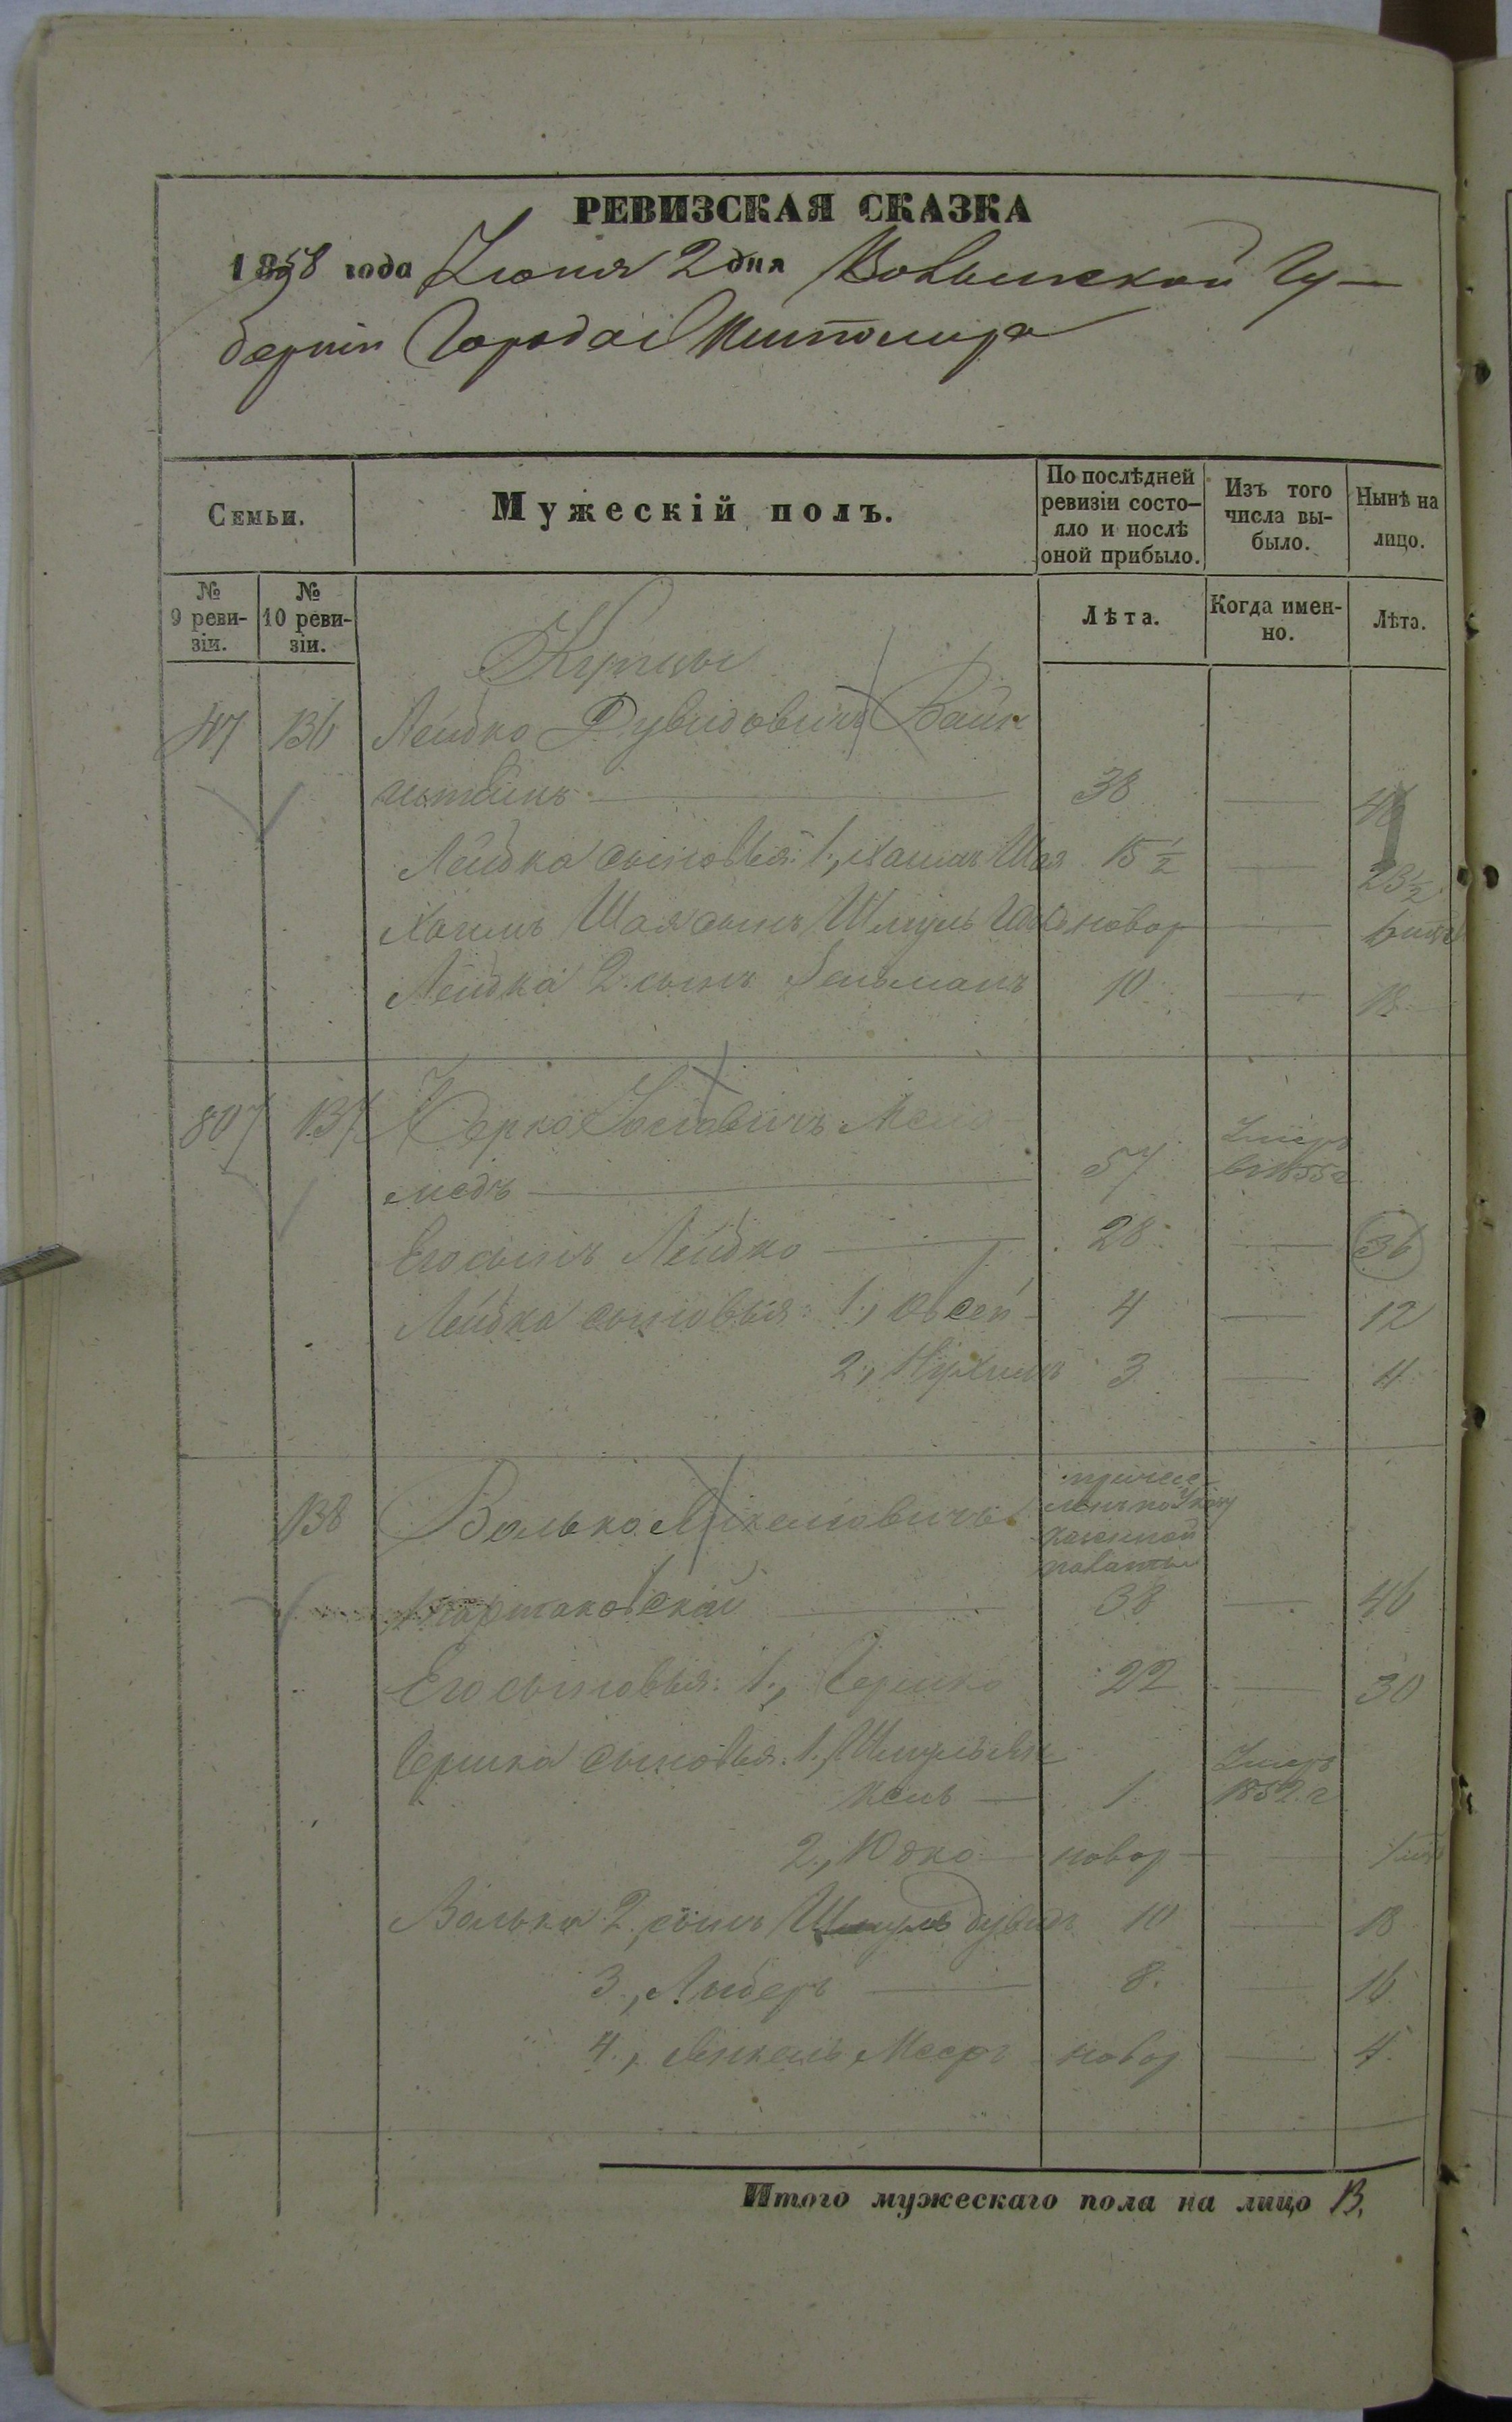 РЕВИЗСКАЯ СКАЗКА
1858 года Июня 2 дня Волынской Гу-
берніи Города Житомира
Семьи.
Мужескій полъ.
По послѣдней ревизіи состо-яло и послѣ оной прибыло.
Изъ того числа вы-было.
Нынѣ на лицо.
№ 9 реви-зіи.
№ 10 реви-зіи.
Лѣта.
Когда имен-но.
Лѣта.
Купцы
47 136 Лейбко Дувидовичъ Вайн
штейнъ 38 46
Лейбка сыновья: 1., Хаимъ Шая 15 ½ 23 ½
Хаимъ Шая сынъ Шмуль новор
Лейбка 2. сынъ Зельманъ 10 18
807 137 Берко Іосіовичъ
медъ 57 Умеръ въ 1855 г
Его сынъ Лейбко 28 36
Лейбка сыновья: 1., Овсей 4 12
2., Нухимъ 3 11
138 Волько Янкелiовичъ причис-ленъ по указу казенной палаты
38 46
Его сыновья: 1., Гершко 22 30
Гершка сыновья: 1., Шмуль Ян
кель 1 Умеръ 1852 г
2., Юдко новор
Волька 2., сынъ Шмуль Дувидъ 10 18
3., Либеръ 8. 16
4., Янкель Мееръ новор 4.
Итого мужескаго пола на лицо 13.